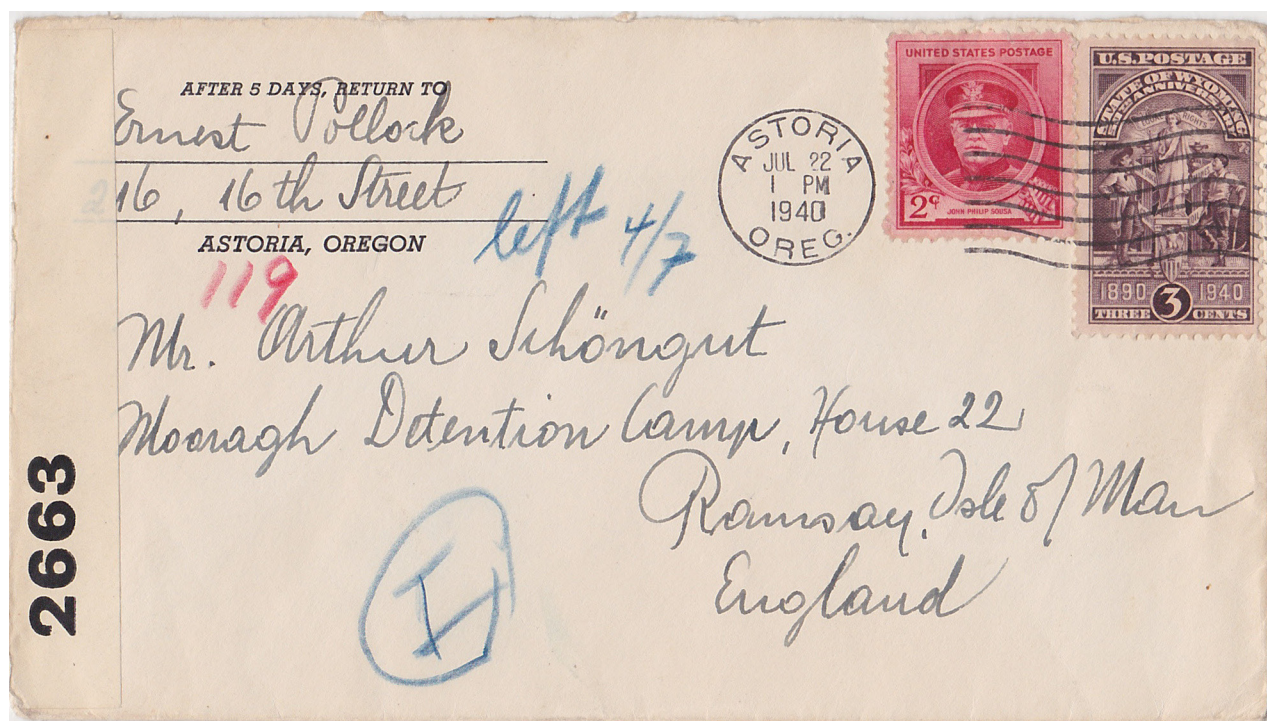 AFTER 5 DAYS, RETURN TO
Ernest Pollock
216, 16th Street
ASTORIA, OREGON
119
left 4/7
ASTORIA
JUL 22
1 PM
1940
OREG.
UNITED STATES POSTAGE
2¢
JOHN PHILIP SOUSA
U.S. POSTAGE
STATE OF WYOMING
50TH ANNIVERSARY
1890 1940
3
THREE CENTS
Mr. Arthur Schöngut
Mooragh Detention Camp, House 22
Ramsay, Isle of Man
England
I
2663